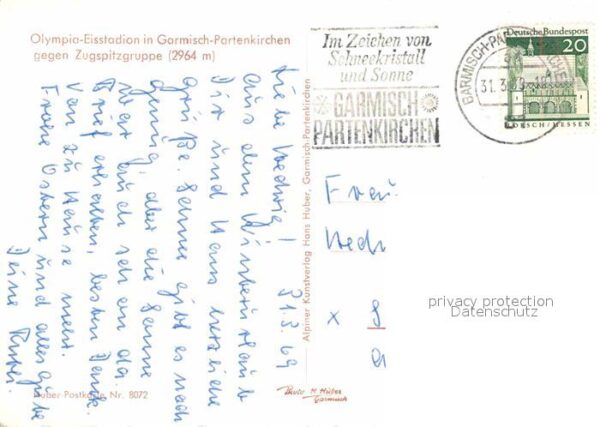 Olympia-Eisstadion in Garmisch-Partenkirchen
gegen Zugspitzgruppe (2964 m)
Im Zeichen von
Schneekristall
und Sonne
GARMISCH
PARTENKIRCHEN
GARMISCH-PARTENKIRCHEN
31.3.69
Deutsche Bundespost
20
LORSCH/HESSEN
31.3.69
Liebe Hedwig!
Aus dem Winterurlaub
Dir und Hans herzliche
Grüße. Schnee gibt es noch
genug, aber die Sonne
war auch schon da
Brief erhalten, besten Dank.
Von zu Hause mehr.
Frohe Ostern und alles Gute
Deine
Alpiner Kunstverlag Hans Huber, Garmisch-Partenkirchen
Frau
Hed
x 8
privacy protection
Datenschutz
Huber-Postkarte Nr. 8072
Photo H. Huber
Garmisch